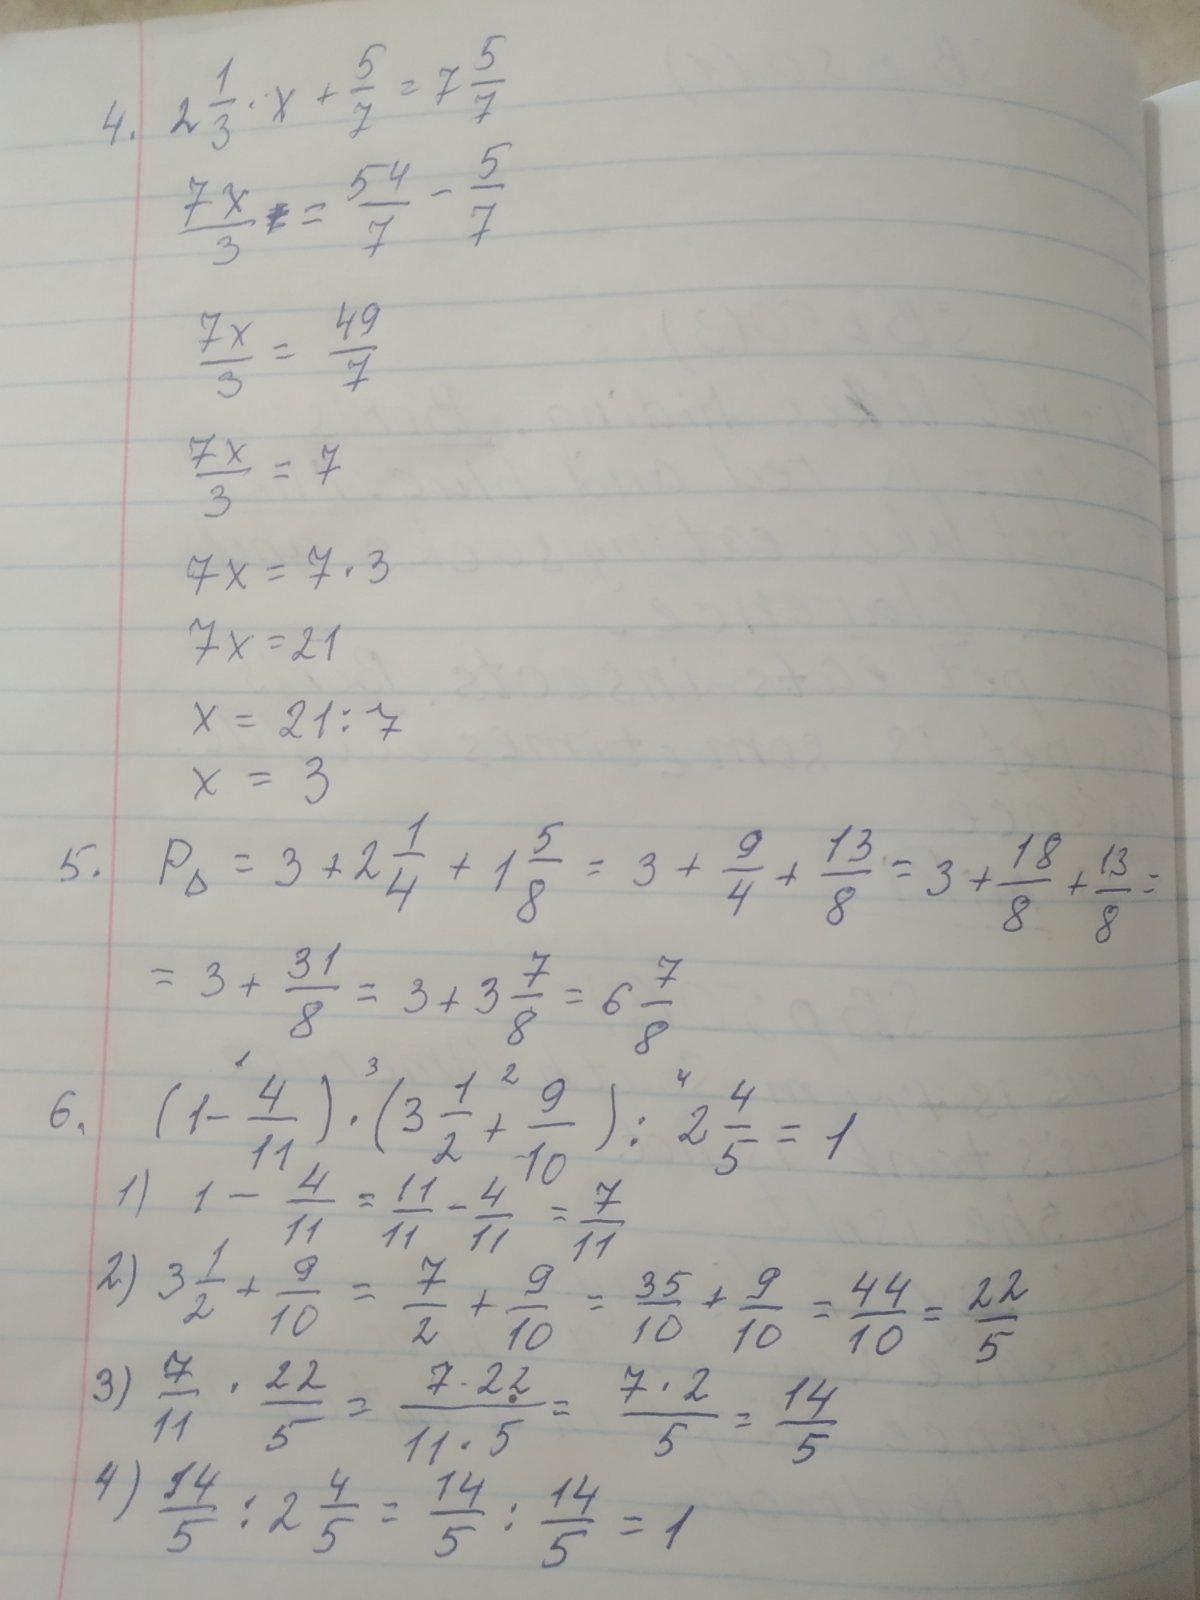 4. 2 1/3 · x + 5/7 = 7 5/7
7x/3 = 54/7 - 5/7
7x/3 = 49/7
7x/3 = 7
7x = 7 · 3
7x = 21
x = 21 : 7
x = 3
5. P△ = 3 + 2 1/4 + 1 5/8 = 3 + 9/4 + 13/8 = 3 + 18/8 + 13/8 =
= 3 + 31/8 = 3 + 3 7/8 = 6 7/8
1 3 2 4
6. (1 - 4/11) · (3 1/2 + 9/10) : 2 4/5 = 1
1) 1 - 4/11 = 11/11 - 4/11 = 7/11
2) 3 1/2 + 9/10 = 7/2 + 9/10 = 35/10 + 9/10 = 44/10 = 22/5
3) 7/11 · 22/5 = 7 · 22/11 · 5 = 7 · 2/5 = 14/5
4) 14/5 : 2 4/5 = 14/5 : 14/5 = 1